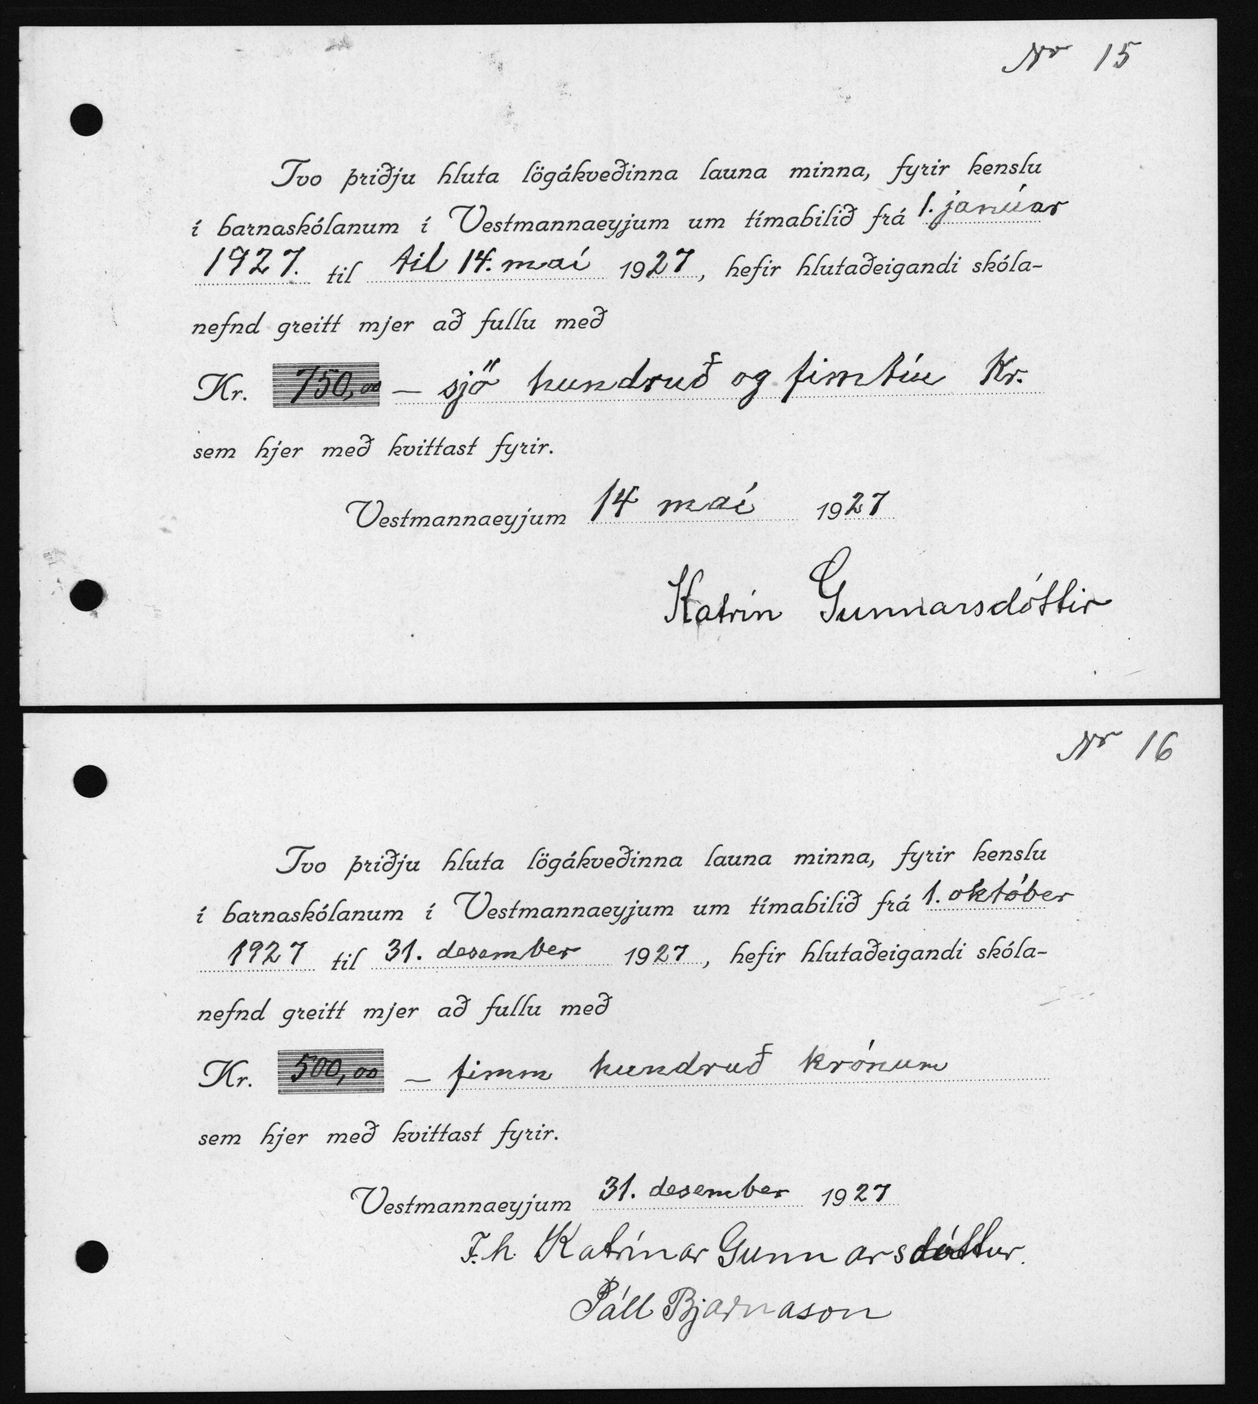 Nr 15
Tvo þriðju hluta lögákveðinna launa minna, fyrir kenslu
í barnaskólanum í Vestmannaeyjum um tímabilið frá 1. janúar
1927. til til 14. maí 1927, hefir hlutaðeigandi skóla-
nefnd greitt mjer að fullu með
Kr. 750,00 — sjö hundruð og fimtíu Kr.
sem hjer með kvittast fyrir.
Vestmannaeyjum 14 maí 1927
Katrín Gunnarsdóttir
Nr 16
Tvo þriðju hluta lögákveðinna launa minna, fyrir kenslu
í barnaskólanum í Vestmannaeyjum um tímabilið frá 1. október
1927 til 31. desember 1927, hefir hlutaðeigandi skóla-
nefnd greitt mjer að fullu með
Kr. 500,00 — fimm hundruð krónum
sem hjer með kvittast fyrir.
Vestmannaeyjum 31. desember 1927
F.h. Katrínar Gunnarsdóttur.
Páll Bjarnason